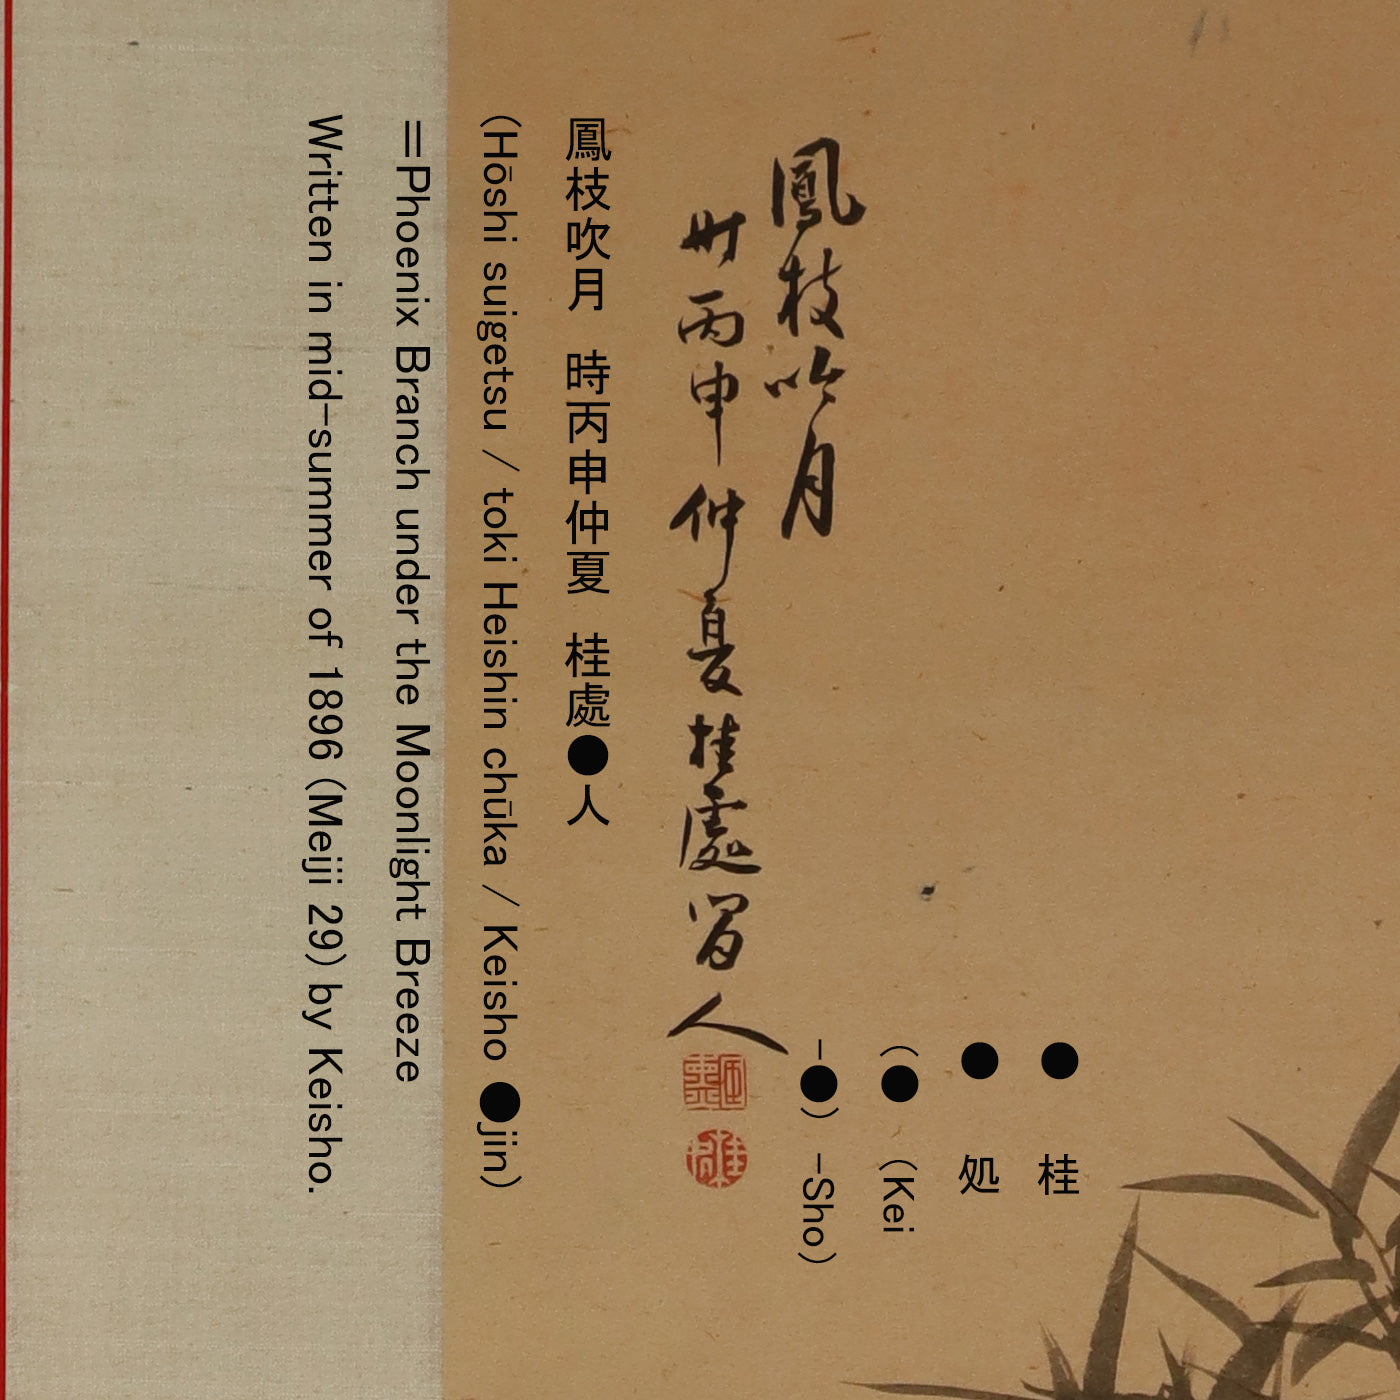 ●桂
●処
(● (Kei
-●) -Sho)
鳳枝吟月
时丙申仲夏桂處 人
鳳枝吹月 時丙申仲夏 桂處●人
(Hōshi suigetsu / toki Heishin chūka / Keisho ●jin)
=Phoenix Branch under the Moonlight Breeze
Written in mid-summer of 1896 (Meiji 29) by Keisho.